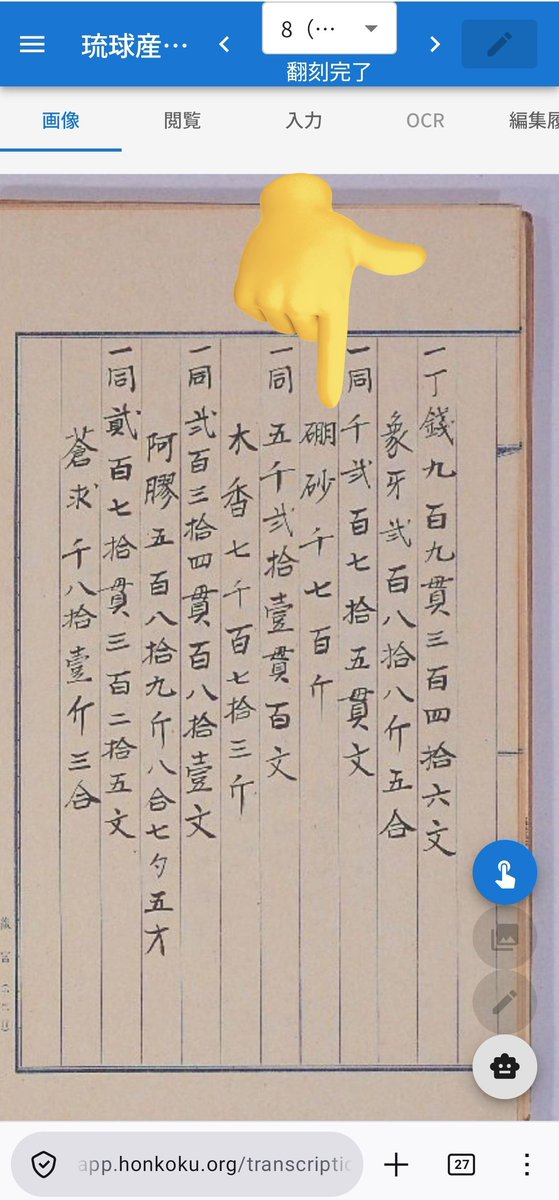 琉球産…
8（…
翻刻完了
画像
閲覧
入力
OCR
編集履
一丁錢九百九貫三百四拾六文
象牙弐百八拾八斤五合
一同千弐百七拾五貫文
硼砂千七百斤
一同五千弐拾壹貫百文
木香七千百七拾三斤
一同弐百三拾四貫百八拾壹文
阿膠五百八拾九斤八合七勺五才
一同貳百七拾貫三百二拾五文
蒼朮千八拾壹斤三合
app.honkoku.org/transcriptic
27